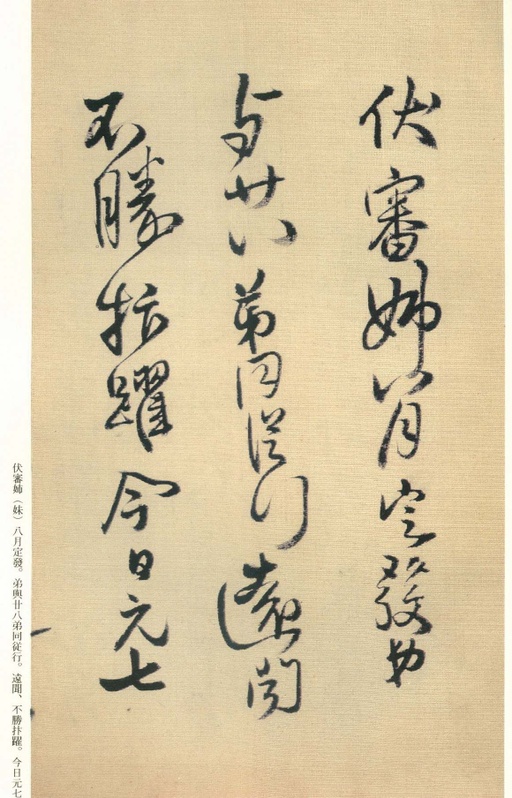 伏審姉八月定發弟
与廿八弟同從行遠聞
不勝抃躍今日元七
伏審姉（妹）八月定發。弟與廿八弟同從行。遠聞、不勝抃躍。今日元七